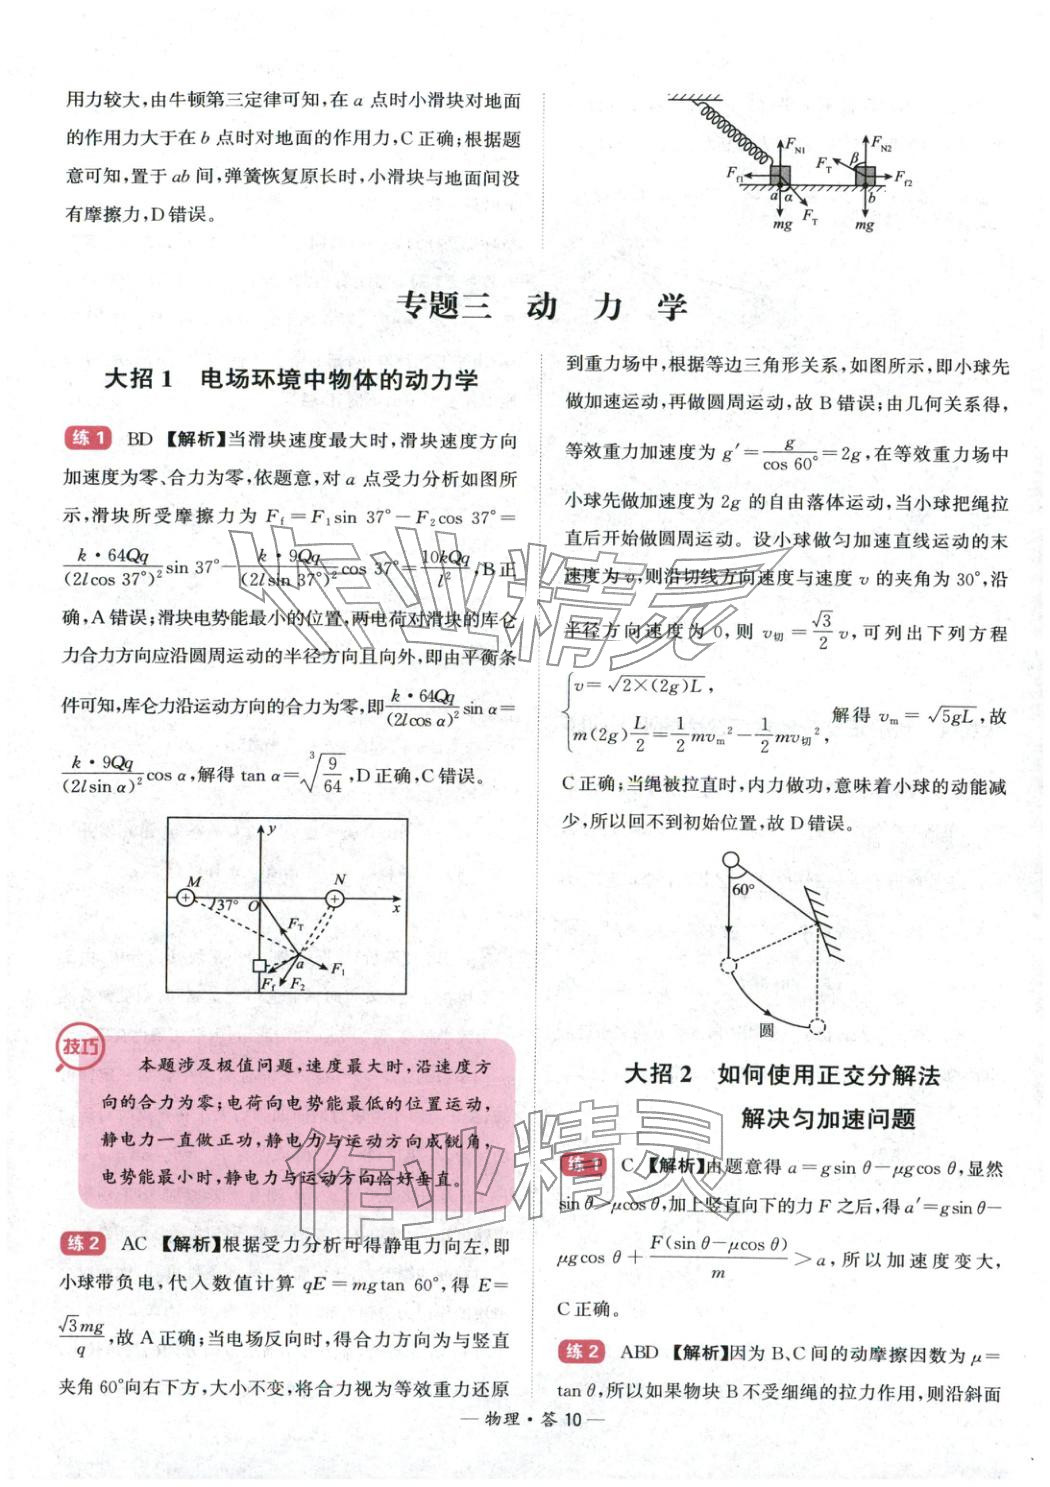 用力较大,由牛顿第三定律可知,在 a 点时小滑块对地面
的作用力大于在 b 点时对地面的作用力,C 正确;根据题
意可知,置于 ab 间,弹簧恢复原长时,小滑块与地面间没
有摩擦力,D 错误。
F_N1 F_T β F_N2
F_f1 a α F_T b F_f2
mg mg
专题三 动 力 学
大招 1 电场环境中物体的动力学
练 1 BD 【解析】当滑块速度最大时,滑块速度方向
加速度为零、合力为零,依题意,对 a 点受力分析如图所
示,滑块所受摩擦力为 F_f=F_1sin 37°-F_2cos 37°=
k·64Qq/(2lcos 37°)²sin 37°-k·9Qq/(2lsin 37°)²cos 37°=10kQq/l²,B 正
确,A 错误;滑块电势能最小的位置,两电荷对滑块的库仑
力合力方向应沿圆周运动的半径方向且向外,即由平衡条
件可知,库仑力沿运动方向的合力为零,即k·64Qq/(2lcos α)²sin α=
k·9Qq/(2lsin α)²cos α,解得 tan α=∛(9/64),D 正确,C 错误。
y
M N
37° O x
F_T
a F_1
F_f F_2
技巧
本题涉及极值问题,速度最大时,沿速度方
向的合力为零;电荷向电势能最低的位置运动,
静电力一直做正功,静电力与运动方向成锐角,
电势能最小时,静电力与运动方向恰好垂直。
练 2 AC 【解析】根据受力分析可得静电力向左,即
小球带负电,代入数值计算 qE=mgtan 60°,得 E=
√3mg/q,故 A 正确;当电场反向时,得合力方向为与竖直
夹角 60°向右下方,大小不变,将合力视为等效重力还原
到重力场中,根据等边三角形关系,如图所示,即小球先
做加速运动,再做圆周运动,故 B 错误;由几何关系得,
等效重力加速度为 g′=g/cos 60°=2g,在等效重力场中
小球先做加速度为 2g 的自由落体运动,当小球把绳拉
直后开始做圆周运动。设小球做匀加速直线运动的末
速度为 v,则沿切线方向速度与速度 v 的夹角为 30°,沿
半径方向速度为 0,则 v切=√3/2 v,可列出下列方程
{v=√(2×(2g)L),
m(2g)L/2=1/2mv_m²-1/2mv切², 解得 v_m=√(5gL),故
C 正确;当绳被拉直时,内力做功,意味着小球的动能减
少,所以回不到初始位置,故 D 错误。
60°
圆
大招 2 如何使用正交分解法
解决匀加速问题
练 1 C 【解析】由题意得 a=gsin θ-μgcos θ,显然
sin θ>μcos θ,加上竖直向下的力 F 之后,得 a′=gsin θ-
μgcos θ+F(sin θ-μcos θ)/m>a,所以加速度变大,
C 正确。
练 2 ABD 【解析】因为 B、C 间的动摩擦因数为 μ=
tan θ,所以如果物块 B 不受细绳的拉力作用,则沿斜面
— 物理·答 10 —
作业精灵
作业精灵